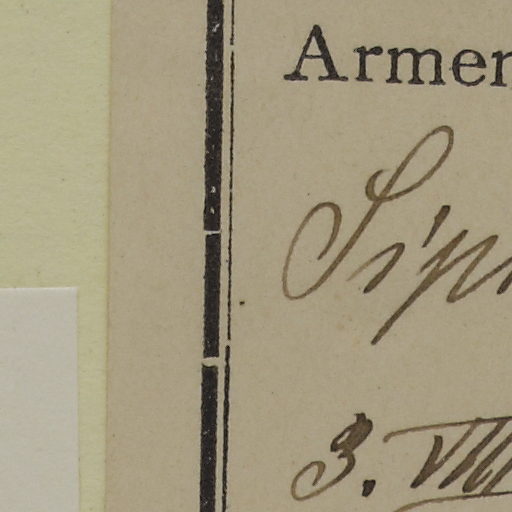 Armen
Sipi
3. VIII